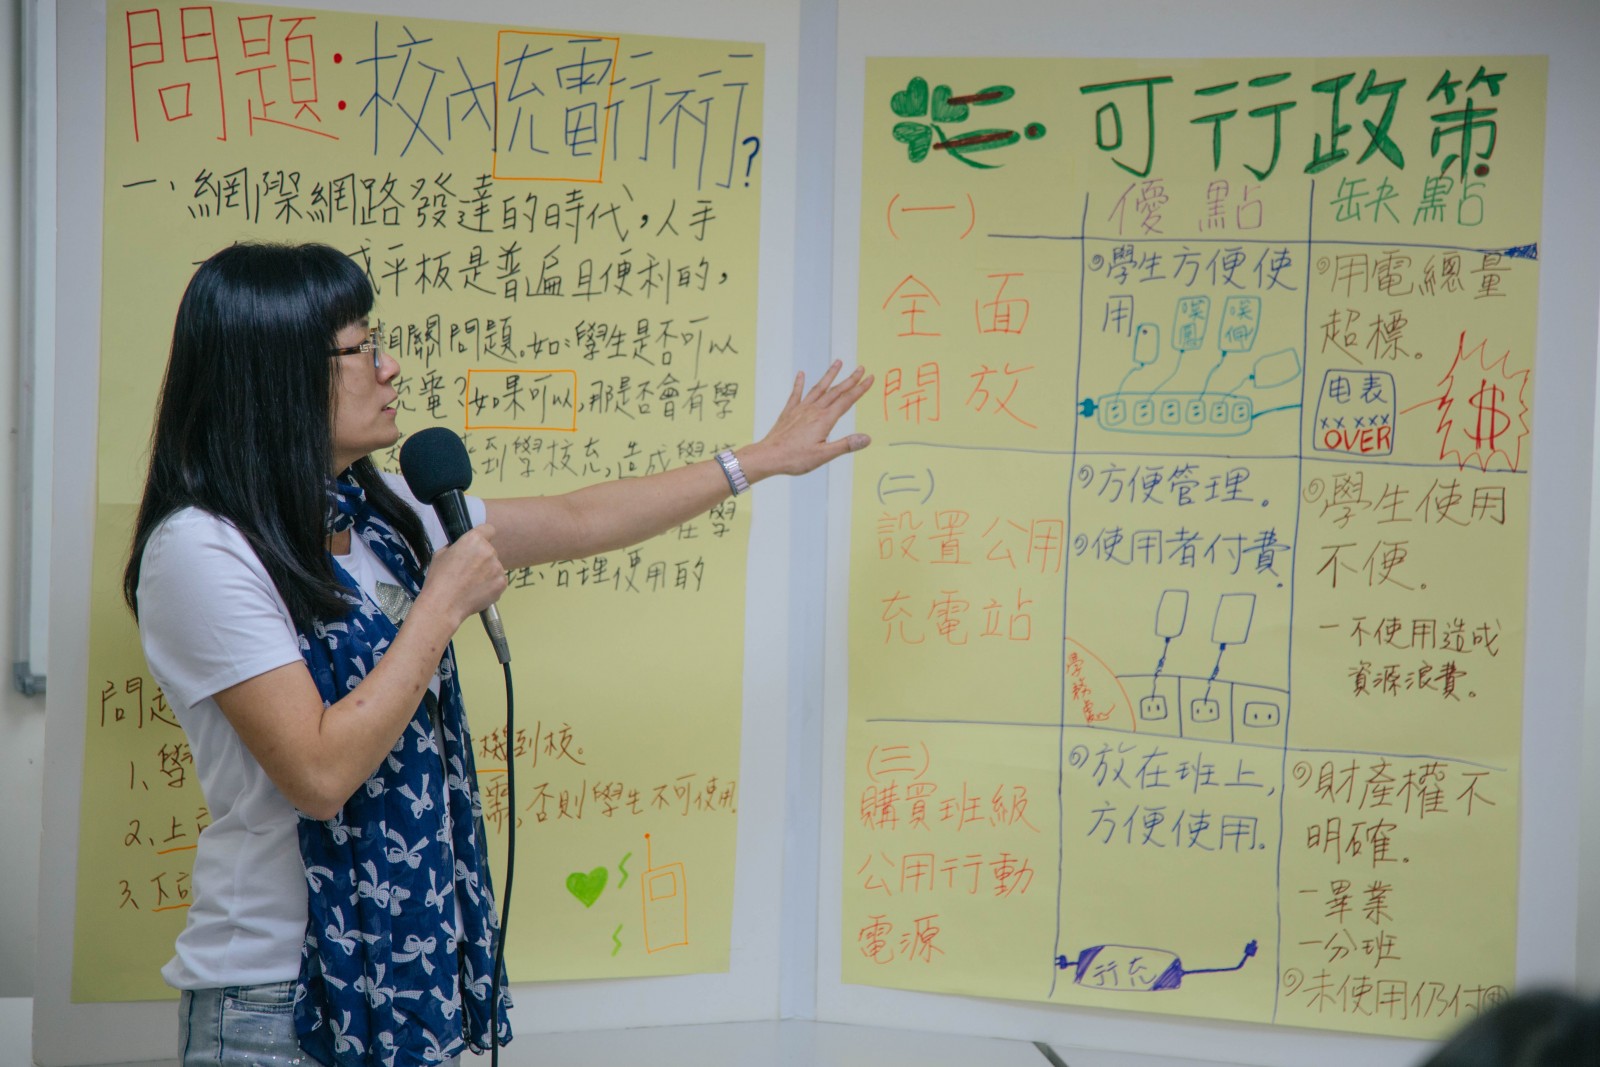 問題:校內充電行不行?
一、網際網路發達的時代,人手
或平板是普遍且便利的,
相關問題。如:學生是否可以
充電?如果可以,那是否會有學
到學校充,造成學
在學
理、管理使用的
問題
1、學
機到校。
2、上
需,否則學生不可使用。
3、不
二、可行政策
優點
缺點
(一)
全面
開放
學生方便使
用
用電總量
超標。
电表
XX XXX
OVER
$
(二)
設置公用
充電站
方便管理。
使用者付費.
學務處
學生使用
不便。
一不使用造成
資源浪費。
(三)
購買班級
公用行動
電源
放在班上,
方便使用.
行充
財產權不
明確.
一畢業
一分班
未使用仍付